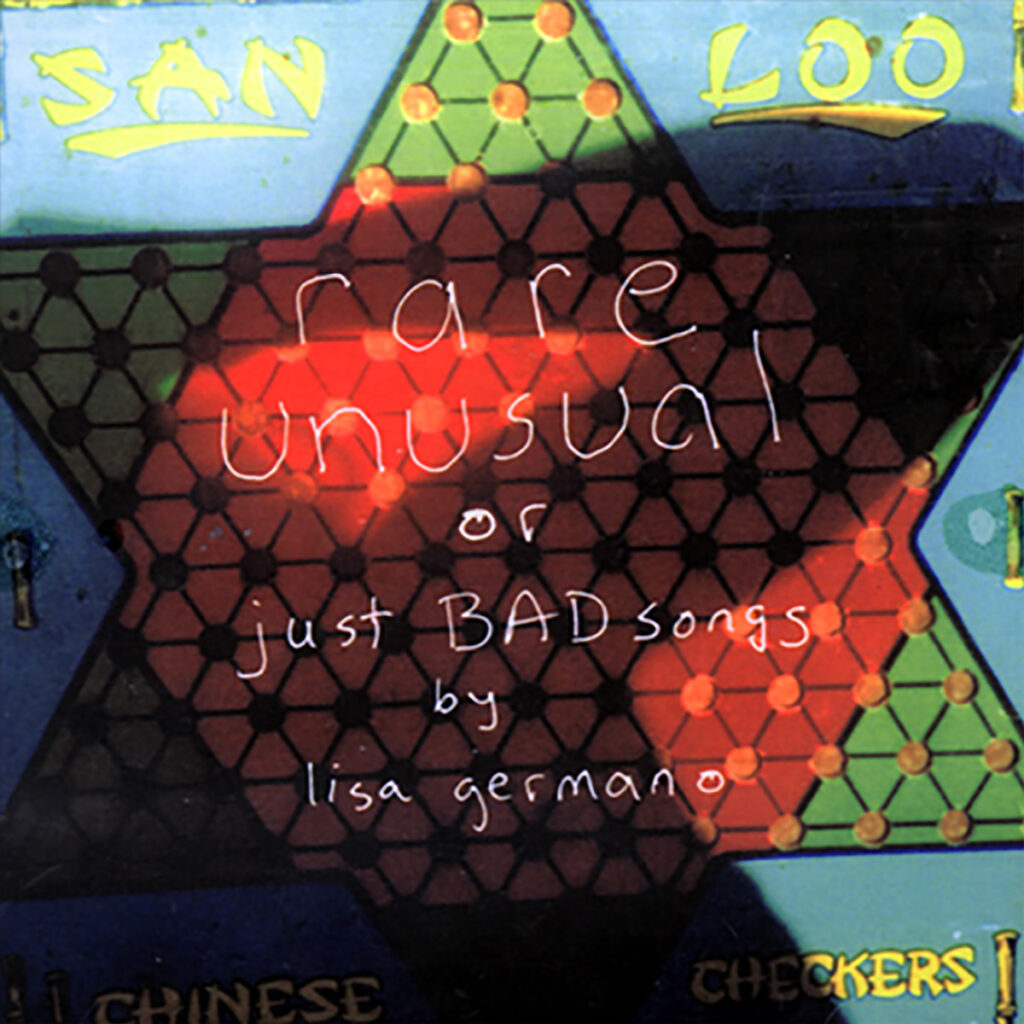 SAN LOO
rare
unusual
or
just BAD songs
by
lisa germano
CHINESE CHECKERS